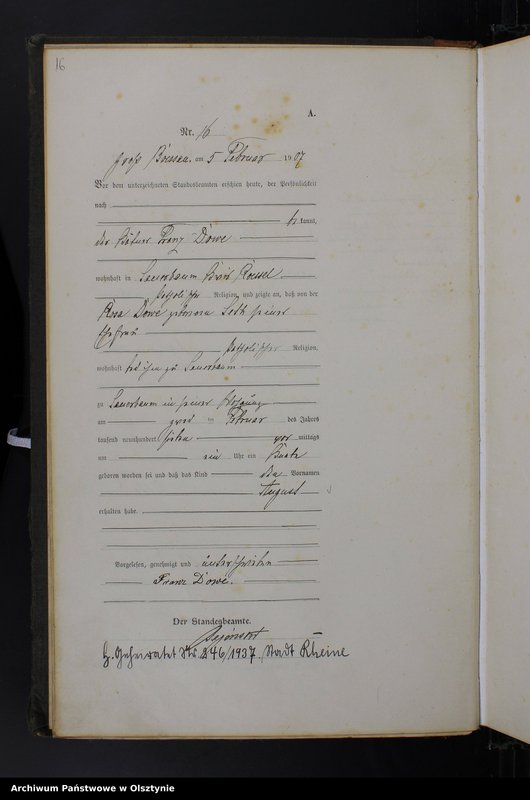 16
A.
Nr. 16
Groß Bössau am 5 Februar 1907
Vor dem unterzeichneten Standesbeamten erschien heute, der Persönlichkeit
nach
be kannt,
der Franz Dowe
wohnhaft in Lauerbaum Kreis Roessel
katholischer Religion, und zeigte an, daß von der
Rosa Dowe geborene seiner
Ehefrau
katholischer Religion,
wohnhaft bei ihm zu Sauerbaum
zu Sauerbaum in seiner Wohnung
am zwei ten Februar des Jahres
tausend neunhundert sieben vor mittags
um ein Uhr ein Knabe
geboren worden sei und daß das Kind den Vornamen
August
erhalten habe.
Vorgelesen, genehmigt und unterschrieben
Franz Dowe.
Der Standesbeamte.
G. Geheiratet Nr. 246/1937, Stadt Rheine
Archiwum Państwowe w Olsztynie